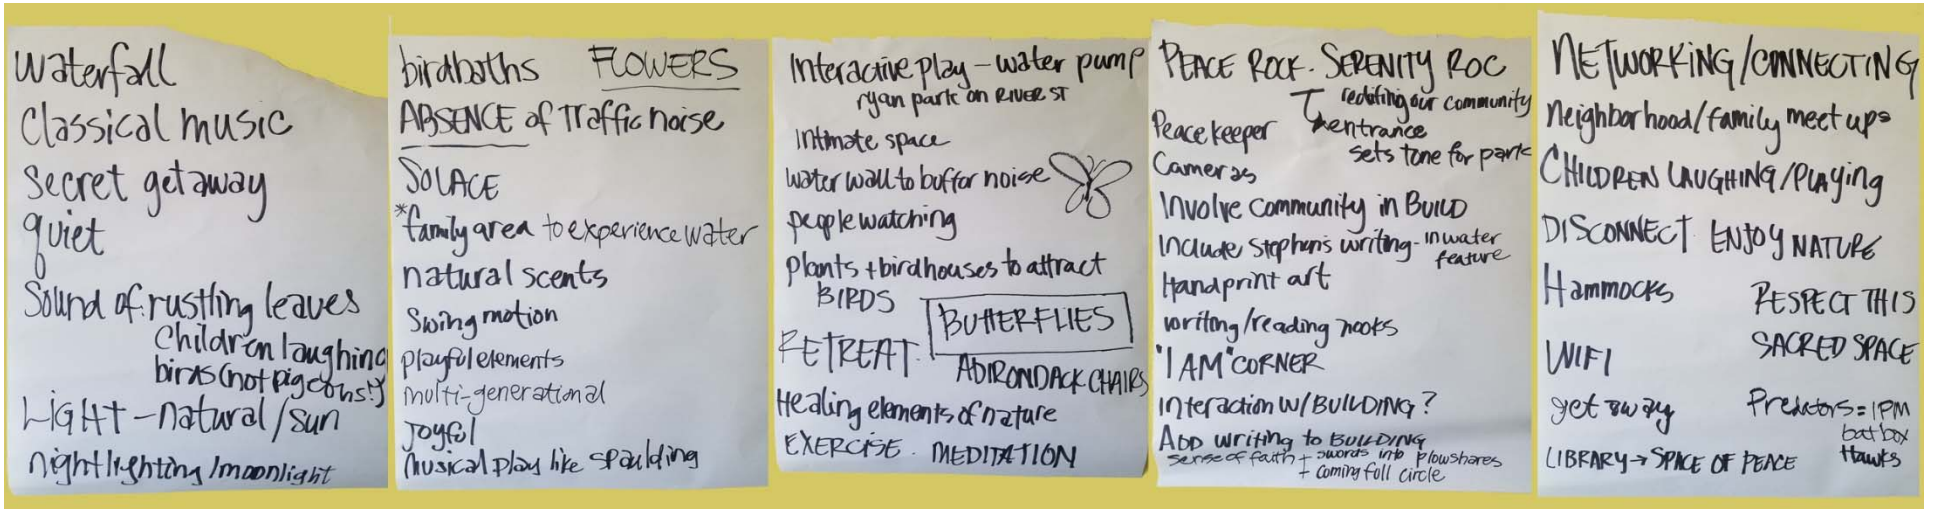 waterfall
Classical music
Secret getaway
quiet
Sound of rustling leaves
Children laughing
birds (not pigeons!)
LIGHT - natural/sun
night lighting/moonlight
birdbaths FLOWERS
ABSENCE of Traffic noise
SOLACE
*family area to experience water
natural scents
Swing motion
playful elements
multi-generational
Joyful
musical play like spaulding
Interactive play - water pump
ryan park on RIVER ST
Intimate space
water wall to buffor noise
people watching
plants + birdhouses to attract
BIRDS
BUTTERFLIES
RETREAT.
ADIRONDACK CHAIRS
Healing elements of nature
EXERCISE. MEDITATION
PEACE ROCK. SERENITY ROC
redefing our community
entrance
sets tone for park
Peace keeper
Cameras
Involve community in BUILD
Include Stephen's writing - in water
feature
Handprint art
writing/reading nooks
"I AM" CORNER
Interaction w/BUILDING?
ADD writing to BUILDING
sense of faith + swords into plowshares
+ coming full circle
NETWORKING/CONNECTING
Neighborhood/family meet ups
CHILDREN LAUGHING/PLAYING
DISCONNECT. ENJOY NATURE
Hammocks
RESPECT THIS
SACRED SPACE
WIFI
get away
Predators = IPM
bat box
Hawks
LIBRARY → SPACE OF PEACE